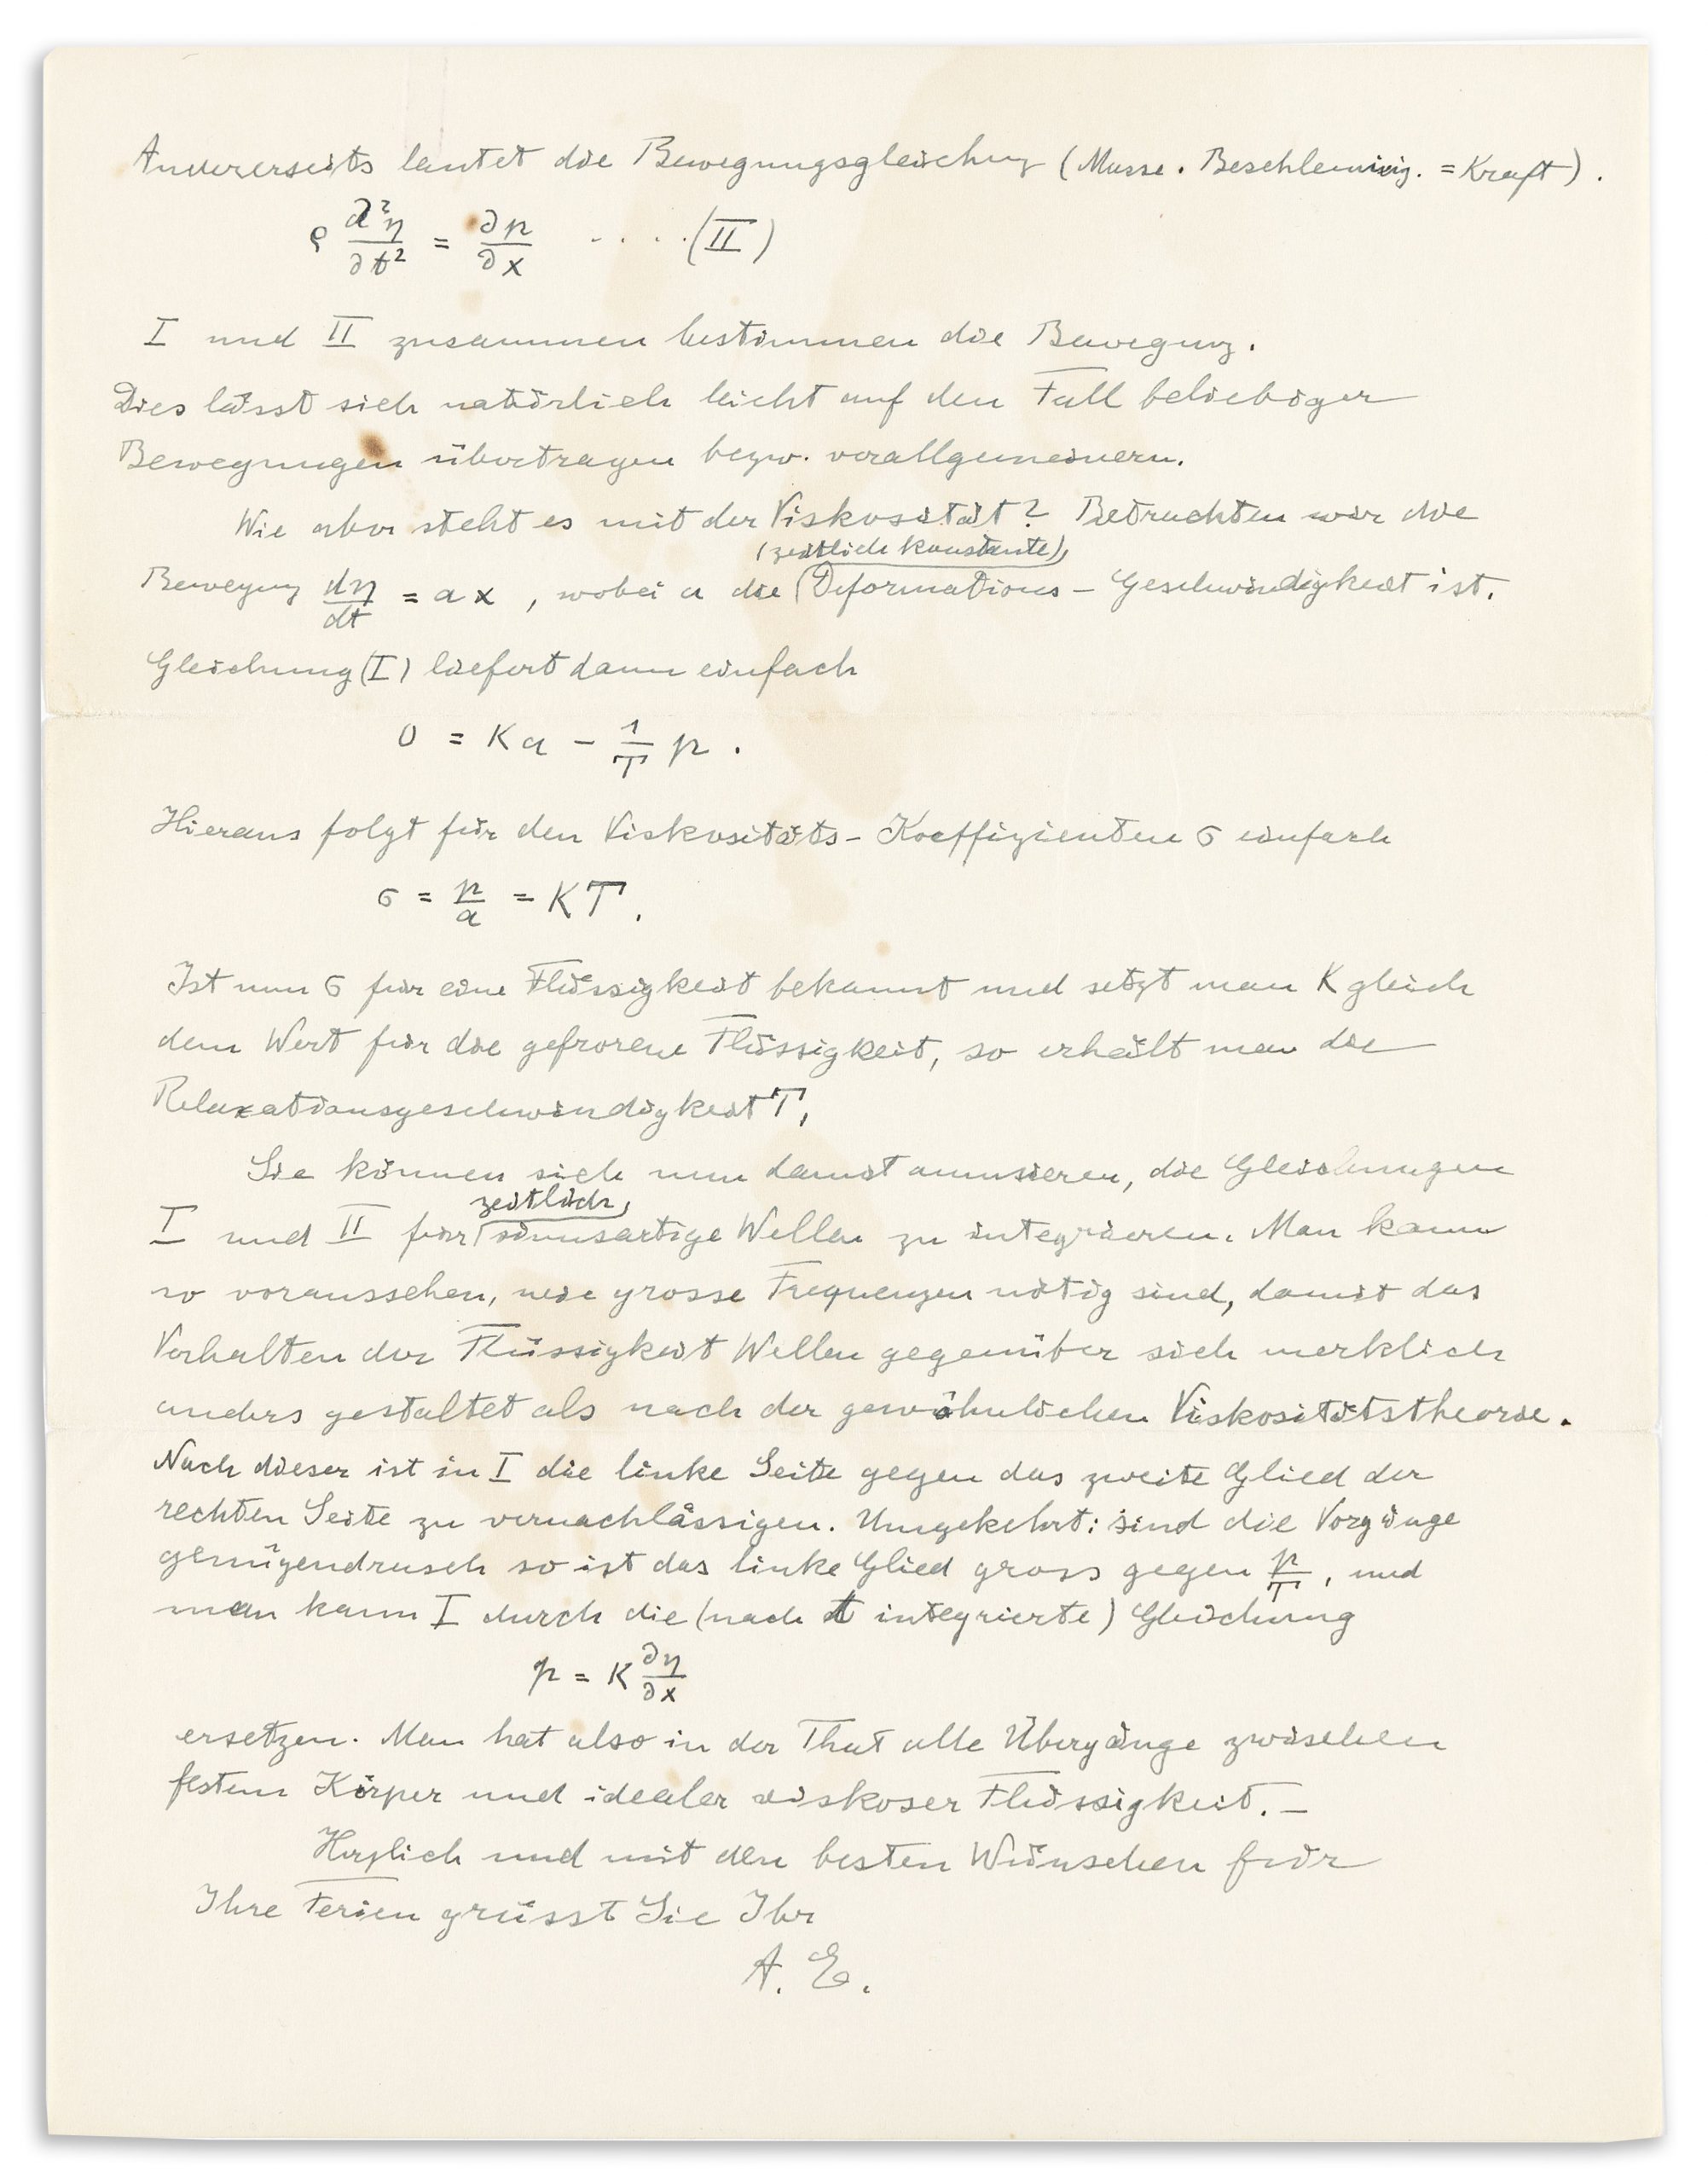 Andererseits lautet die Bewegungsgleichung (Masse . Beschleunig. = Kraft).
ϱ ∂²η/∂t² = ∂p/∂x .....(II)
I und II zusammen bestimmen die Bewegung.
Dies lässt sich natürlich leicht auf den Fall beliebiger
Bewegungen übertragen bezw. verallgemeinern.
Wie aber steht es mit der Viskosität? Betrachten wir die
(zeitlich konstante)
Bewegung dη/dt = a x, wobei a die Deformations-Geschwindigkeit ist.
Gleichung (I) liefert dann einfach
0 = K a - 1/T p.
Hieraus folgt für den Viskositäts-Koeffizienten σ einfach
σ = p/a = K T.
Ist nun σ für eine Flüssigkeit bekannt und setzt man K gleich
dem Wert für die gefrorene Flüssigkeit, so erhält man die
Relaxationsgeschwindigkeit T.
Sie können sich nun damit amusieren, die Gleichungen
zeitlich
I und II für sinusartige Wellen zu integrieren. Man kann
so voraussehen, wie grosse Frequenzen nötig sind, damit das
Verhalten der Flüssigkeit Wellen gegenüber sich merklich
anders gestaltet als nach der gewöhnlichen Viskositätstheorie.
Nach dieser ist in I die linke Seite gegen das zweite Glied der
rechten Seite zu vernachlässigen. Umgekehrt: sind die Vorgänge
genügendrasch so ist das linke Glied gross gegen p/T, und
man kann I durch die (nach t integrierte) Gleichung
p = K ∂η/∂x
ersetzen. Man hat also in der That alle Übergänge zwischen
festem Körper und idealer viskoser Flüssigkeit. –
Herzlich und mit den besten Wünschen für
Ihre Ferien grüsst Sie Ihr
A. E.